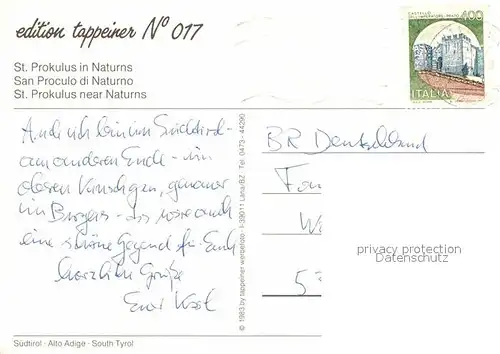 edition tappeiner Nº 017
CASTELLO
DELL'IMPERATORE. PRATO
400
ITALIA
St. Prokulus in Naturns
San Proculo di Naturno
St. Prokulus near Naturns
Auch ich bin im Südtirol -
am anderen Ende - im
oberen Vinschgau, genauer
in Burgeis - das wäre auch
eine schöne Gegend für Euch
herzliche Grüße
Euer Karl
© 1983 by tappeiner werbefoto · I-39011 Lana/BZ · Tel. 0473 - 44290
BR Deutschland
Fam
We
53
privacy protection
Datenschutz
Südtirol · Alto Adige · South Tyrol